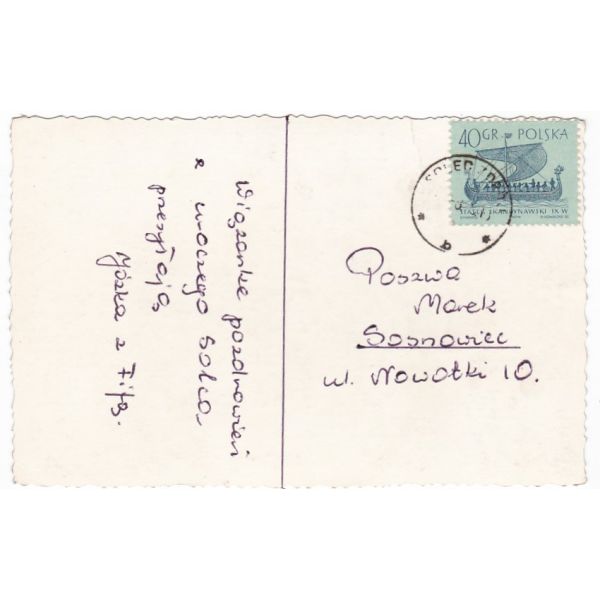 Wiązankę pozdrowień
z uroczego Solca
przesyłają
Józka z Fifą.
40 GR POLSKA
STATEK SKANDYNAWSKI IX W
Poszwa
Marek
Sosnowiec
ul. Nowotki 10.